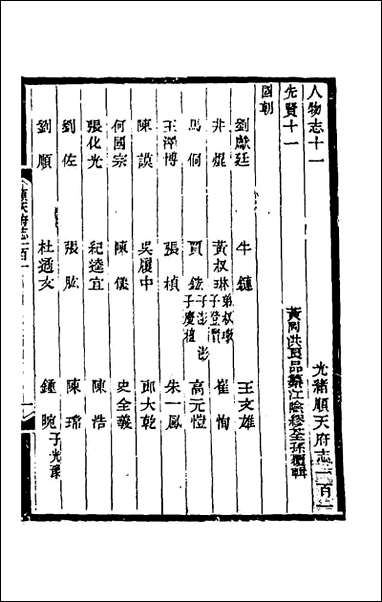 人物志十一 光緒順天府志一百一
先賢十一 黃岡洪良品纂江陰繆荃孫覆輯
國朝
劉獻廷 牛 王文雄
焜 黃叔琳弟叔璥子登賢 崔恂
馬侗 賈 子澎 子慶 高元愷
王 博 張楨 朱一鳳
陳謨 吳履中 大乾
何國宗 陳儀 史全義
張化光 紀逵宜 陳浩
劉佐 張肱 陳瑞
劉順 杜遹亥 鍾晼子光豫
順天府志一百一